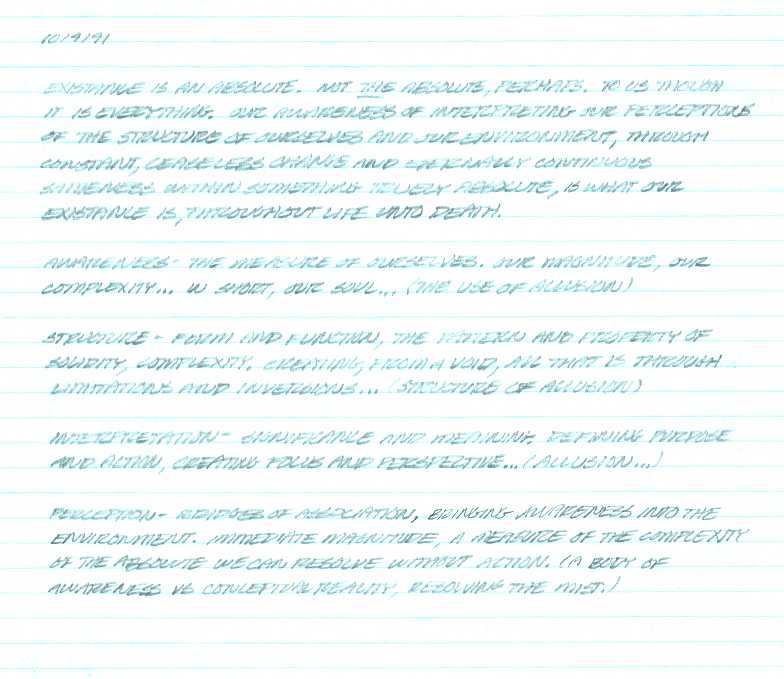 10/9/91
EXISTANCE IS AN ABSOLUTE. NOT THE ABSOLUTE, PERHAPS. TO US THOUGH
IT IS EVERYTHING. OUR AWARENESS OF INTERPRETING OUR PERCEPTIONS
OF THE STRUCTURE OF OURSELVES AND OUR ENVIRONMENT, THROUGH
CONSTANT, CEASELESS CHANGE AND ETERNALLY CONTINUOUS
SAMENESS WITHIN SOMETHING TRUELY ABSOLUTE, IS WHAT OUR
EXISTANCE IS, THROUGHOUT LIFE UNTO DEATH.
AWARENESS - THE MEASURE OF OURSELVES. OUR MAGNITUDE, OUR
COMPLEXITY... IN SHORT, OUR SOUL... (THE USE OF ALLUSION)
STRUCTURE - FORM AND FUNCTION, THE PATTERN AND PROPERTY OF
SOLIDITY, COMPLEXITY. CREATING, FROM A VOID, ALL THAT IS THROUGH
LIMITATIONS AND INVERSIONS... (STRUCTURE OF ALLUSION)
INTERPRETATION - SIGNIFICANCE AND MEANING. DEFINING PURPOSE
AND ACTION, CREATING FOCUS AND PERSPECTIVE... (ALLUSION...)
PERCEPTION - BRIDGES OF ASSOCIATION, BRINGING AWARENESS INTO THE
ENVIRONMENT. IMMEDIATE MAGNITUDE, A MEASURE OF THE COMPLEXITY
OF THE ABSOLUTE WE CAN RESOLVE WITHOUT ACTION. (A BODY OF
AWARENESS VS CONCEPTUAL REALITY, RESOLVING THE MIST.)